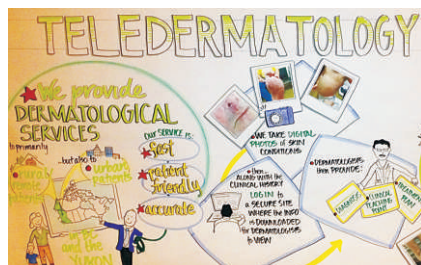 TELEDERMATOLOGY
We provide
DERMATOLOGICAL
SERVICES
to primarily
rural &
remote
patients
...but also to
urban
patients
in BC
and the
YUKON
OUR SERVICE IS:
fast
patient
friendly
accurate
WE TAKE DIGITAL
PHOTOS OF SKIN
CONDITIONS
then...
ALONG WITH THE
CLINICAL HISTORY
LOG IN to
A SECURE SITE
WHERE THE INFO
IS DOWNLOADED
FOR DERMATOLOGISTS
to VIEW
DERMATOLOGISTS
then PROVIDE:
DIAGNOSIS
CLINICAL
TEACHING
POINT
TREATMENT
PLAN